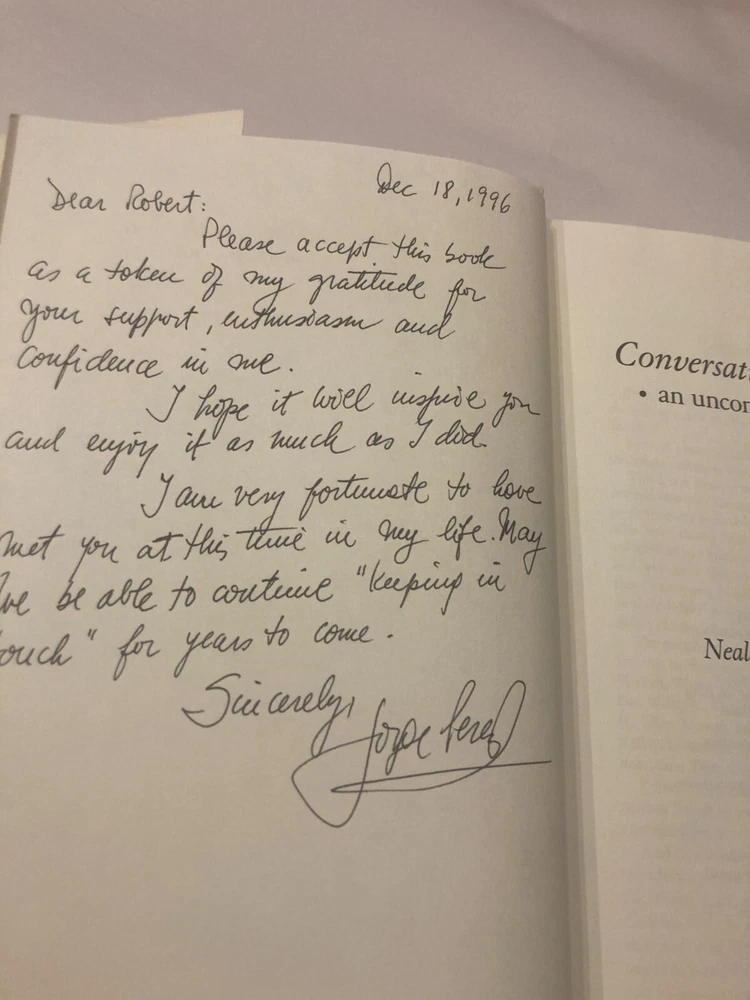 Dec 18, 1996
Dear Robert:
Please accept this book
as a token of my gratitude for
your support, enthusiasm and
confidence in me.
I hope it will inspire you
and enjoy it as much as I did.
I am very fortunate to have
met you at this time in my life. May
we be able to continue "keeping in
touch" for years to come.
Sincerely,
Jorge Perez
Conversati
• an uncon
Neal